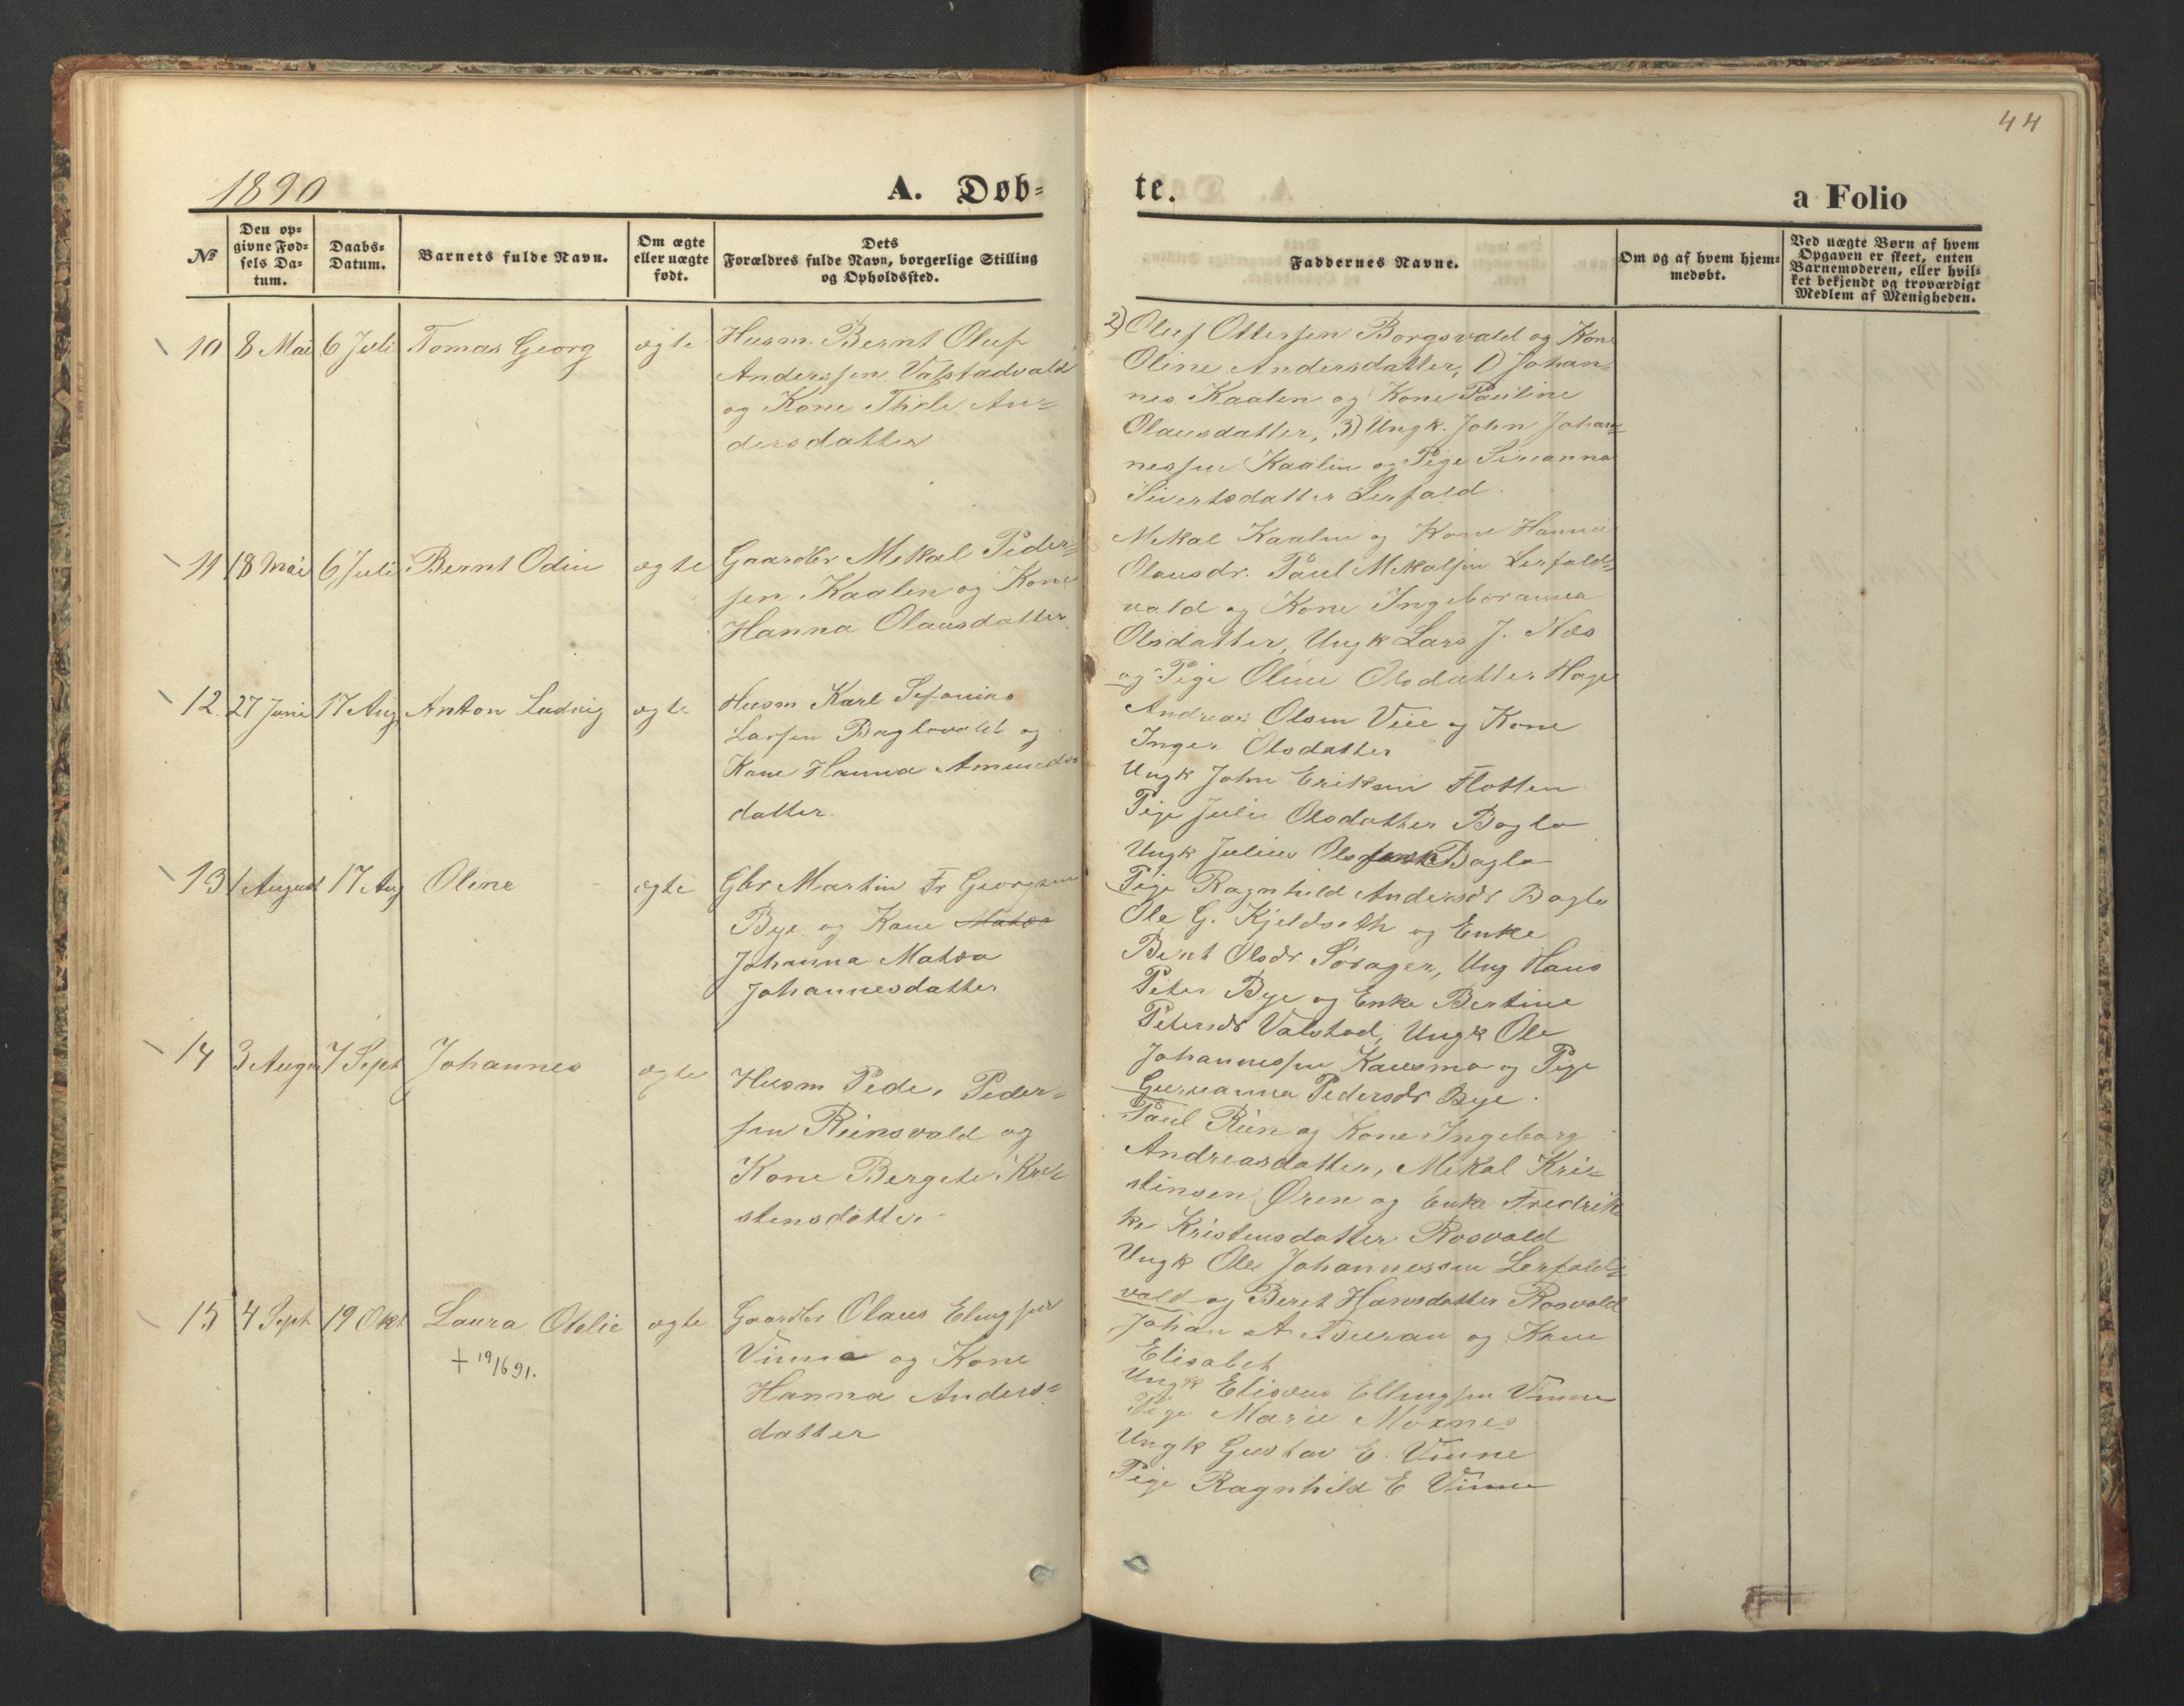 44
1890
A. Døb=
te.
a Folio
№
Den op=
givne Fød=
sels Da=
tum.
Daabs=
Datum.
Barnets fulde Navn.
Om ægte
eller uægte
født.
Dets
Forældres fulde Navn, borgerlige Stilling
og Opholdssted.
Faddernes Navne.
Om og af hvem hjem=
medøbt.
Ved uægte Børn af hvem
Opgaven er skeet, enten
Barnemoderen, eller hvil=
ket bekjendt og troværdigt
Medlem af Menigheden.
10 8 Mai 6 Juli Tomas Georg ægte
Husm. Bernt Oluf
Anderssen Valstadvald
og Kone Thale An=
dersdatter
2) Oluf Ottersen Borgsvald og Kone
Oline Andersdatter, 1) Johan=
nes Kaalen og Kone Pauline
Olausdatter, 3) Ungk. John Johan=
nessen Kaalen og Pige
Sivertsdatter Lerfald.
11 18 Mai 6 Juli Bernt Odin ægte
Gaardbr Mekal Peder=
sen Kaalen og Kone
Hanna Olausdatter
Mekal Kaalen og Kone Hanna
Olausdr. Paul Mekalsen Lerfald=
vald og Kone Ingeboranna
Olsdatter, Ungk Lars J. Næs
og Pige Oline Olsdatter Hage
12 27 Juni 17 Aug Anton Ludvig ægte
Husm Karl Sefanias
Larsen Baglovald og
Kone Hanna Amunds=
datter.
Andreas Olsen Veie og Kone
Inger Olsdatter
Ungk John Eriksen Flotten
Pige Julie Olsdatter Baglo
Ungk Julius Olsen Baglo
Pige Ragnhild Andersdr Baglo
13 1 August 17 Aug Oline ægte
Gbr Martin Fr Georgsen
Bye og Kone Matea
Johanna Matea
Johannesdatter
Ole G. Kjeldseth og Enke
Berit Olsdr. Sorager, Ung Hans
Peter Bye og Enke Bertine
Petersdr Valstad, Ungk Ole
Johannessen Kausmo og Pige
Guruanna Pedersdr Bye.
14 3 Aug 7 Sept Johannes ægte
Husm Peder Peder=
sen Reinsvald og
Kone Bergete Kri=
stensdatter
Paul Rein og Kone Ingeborg
Andreasdatter, Mekal Kri=
stensen Øren og Enke Fredrik
ke Kristensdatter Rosvald
Ungk Ole Johannessen Lerfald=
vald og Beret Hansdatter Rosvold
15 4 Sept 19 Okt Laura Otelie ægte
+ 19/6 91.
Gaardbr Olaus Elingsen
Vinne og Kone
Hanna Anders=
datter
Johan A. og Kone
Elisabet
Ungk Eliseus Ellingsen Vinne
Pige Marie Moxnes
Ungk Gustav E. Vinne
Pige Ragnhild E Vinne